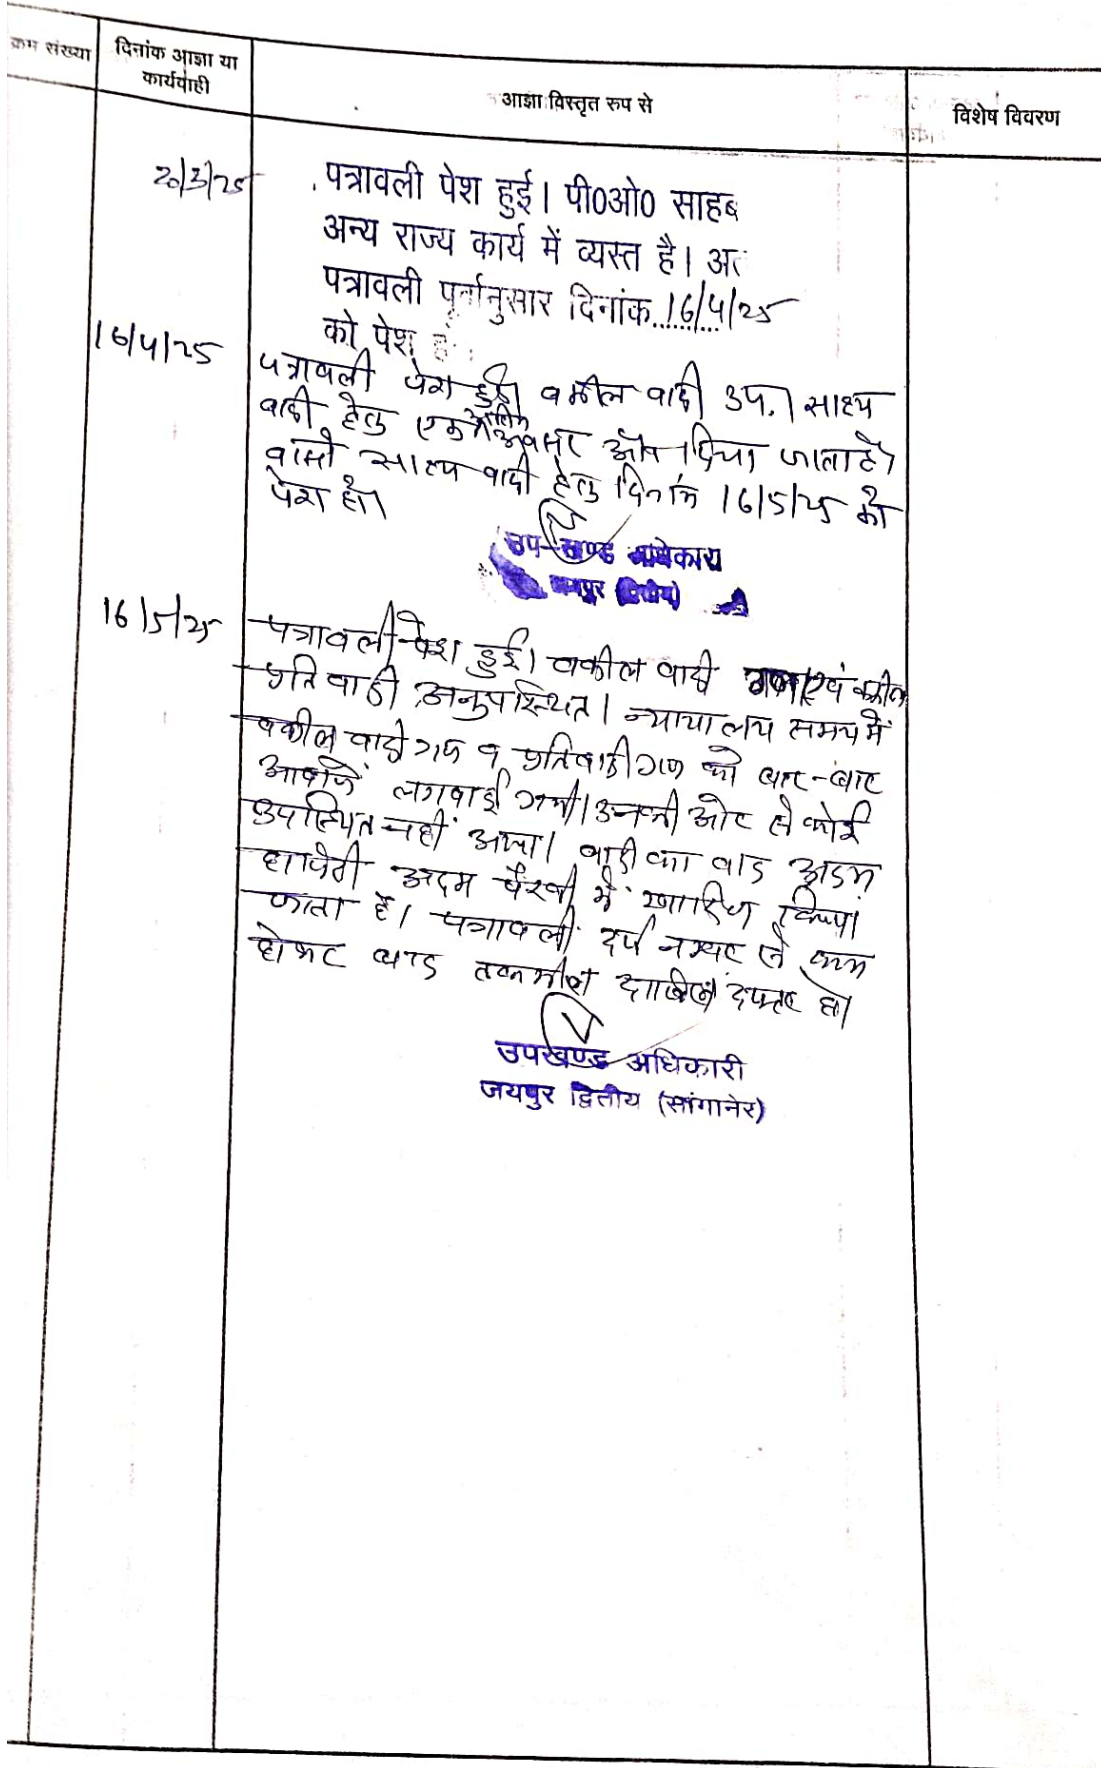 क्रम संख्या
दिनांक आज्ञा या
कार्यवाही
आज्ञा विस्तृत रुप से
विशेष विवरण
20/3/25
पत्रावली पेश हुई। पी0ओ0 साहब
अन्य राज्य कार्य में व्यस्त है। अत
पत्रावली पूर्वानुसार दिनांक 16/4/25
को पेश
16/4/25
पत्रावली पेश हुई। वकील वादी उप.। साक्ष्य
वादी हेतु एक अवसर और दिया जाता है।
वास्ते साक्ष्य वादी हेतु दिनांक 16/5/25 को
पेश हो।
उप-खण्ड अधिकारी
जयपुर (द्वितीय)
16/5/25
पत्रावली पेश हुई। वकील वादी गण एवं वकील
प्रतिवादी अनुपस्थित। न्यायालय समय में
वकील वादी गण व प्रतिवादी गण को बार-बार
आवाजें लगवाई गयी। उनकी ओर से कोई
उपस्थित नहीं आया। वादी का वाद अदम
हाजेरी अदम पैरवी में खारिज किया
जाता है। पत्रावली दर्ज नम्बर से कम
होकर बाद तकमील दाखिल दफ्तर हो।
उपखण्ड अधिकारी
जयपुर द्वितीय (सांगानेर)